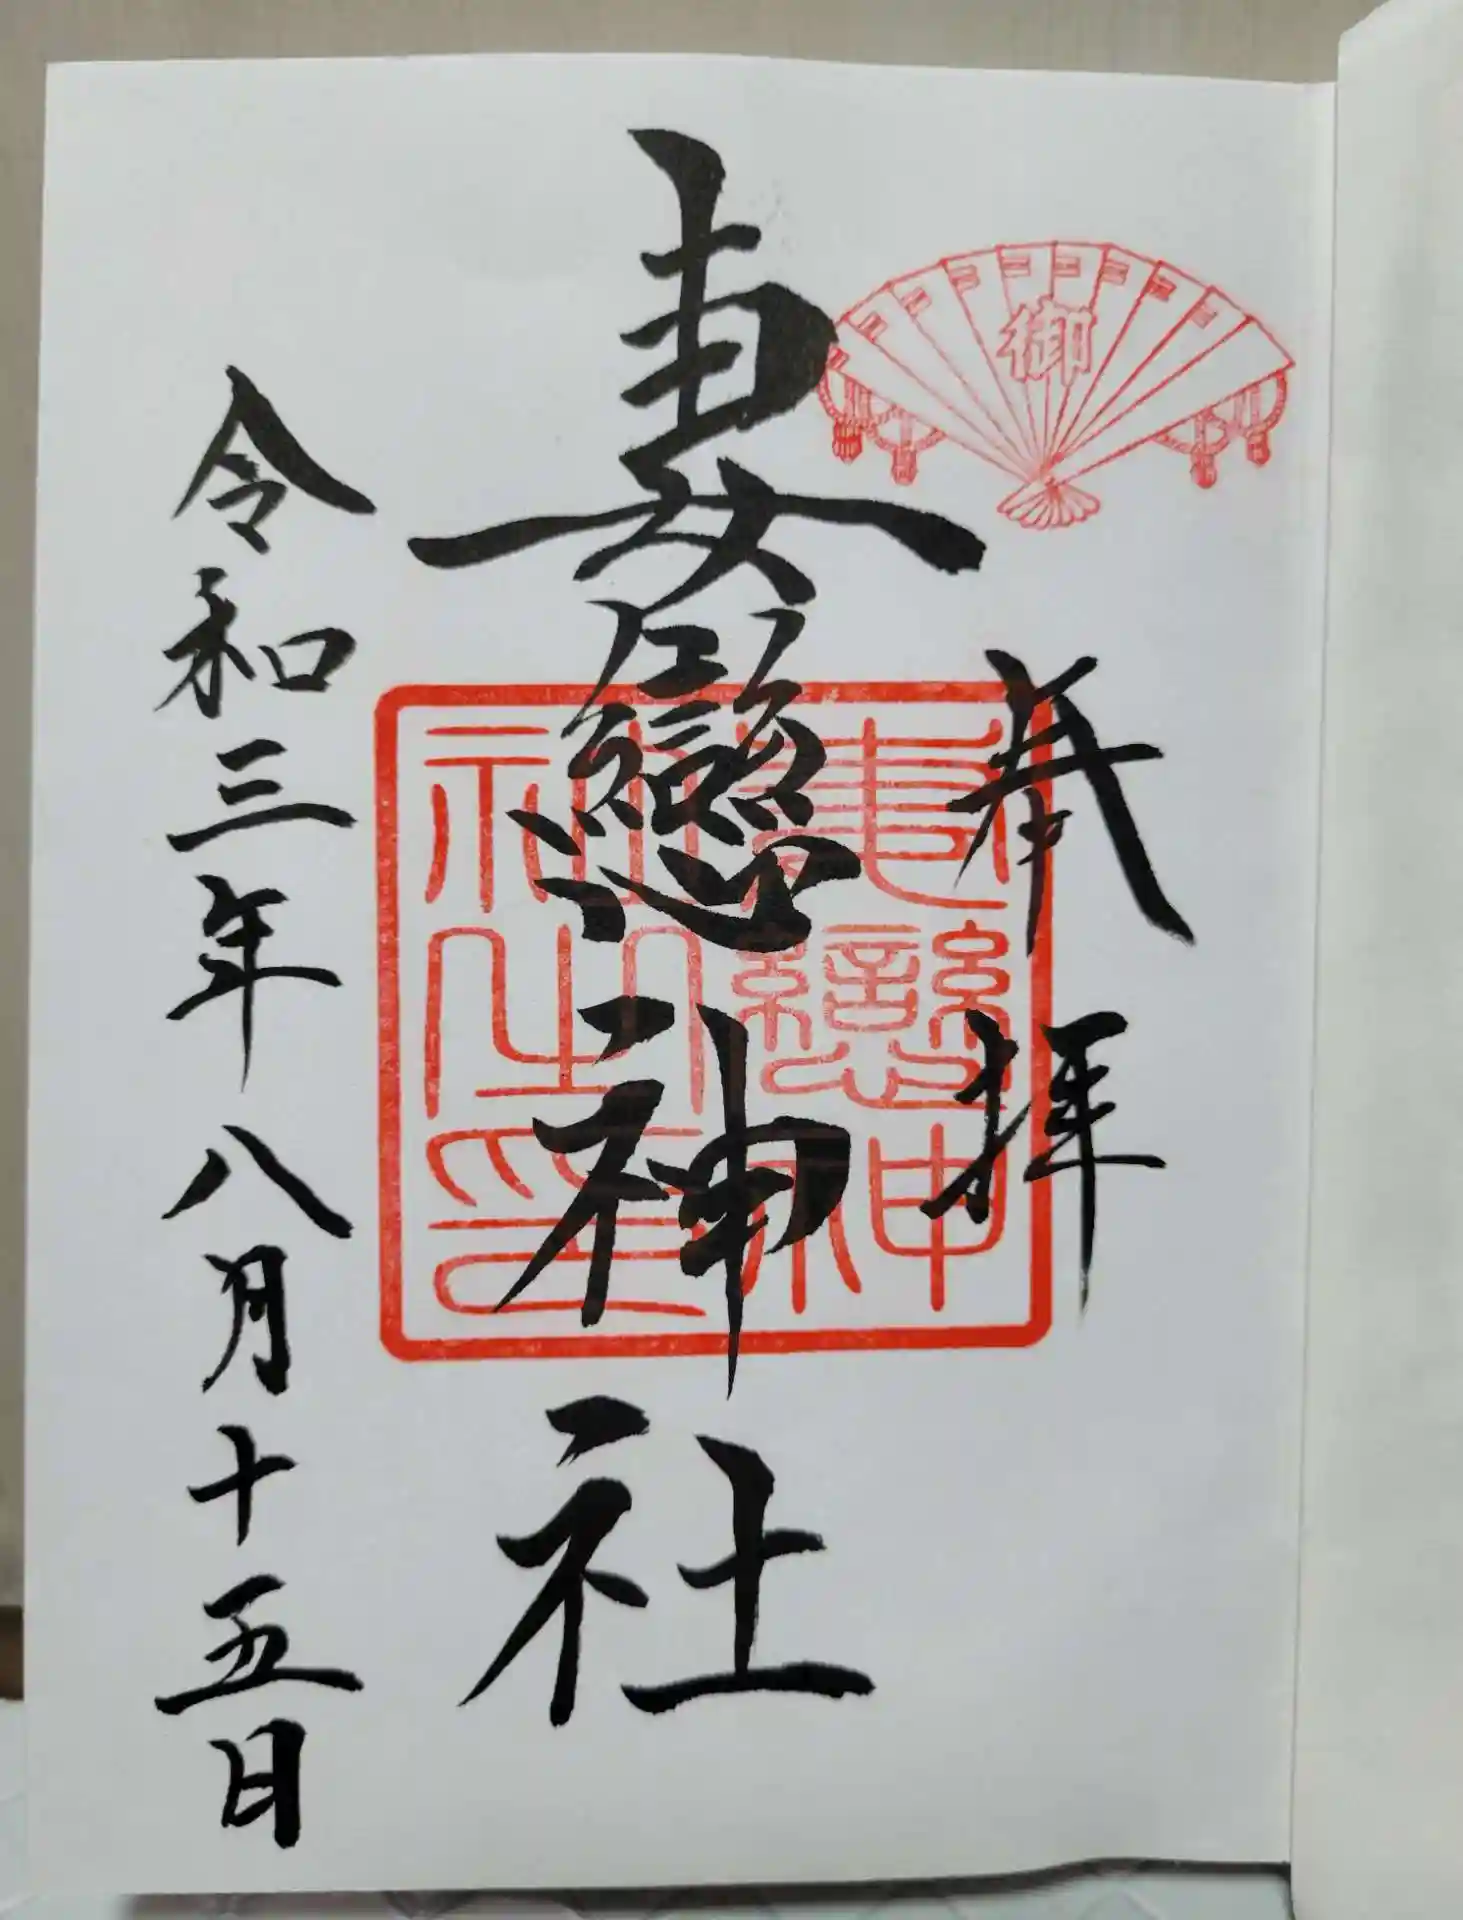 御
奉拝
妻戀神社
妻戀神
社之印
令和三年八月十五日